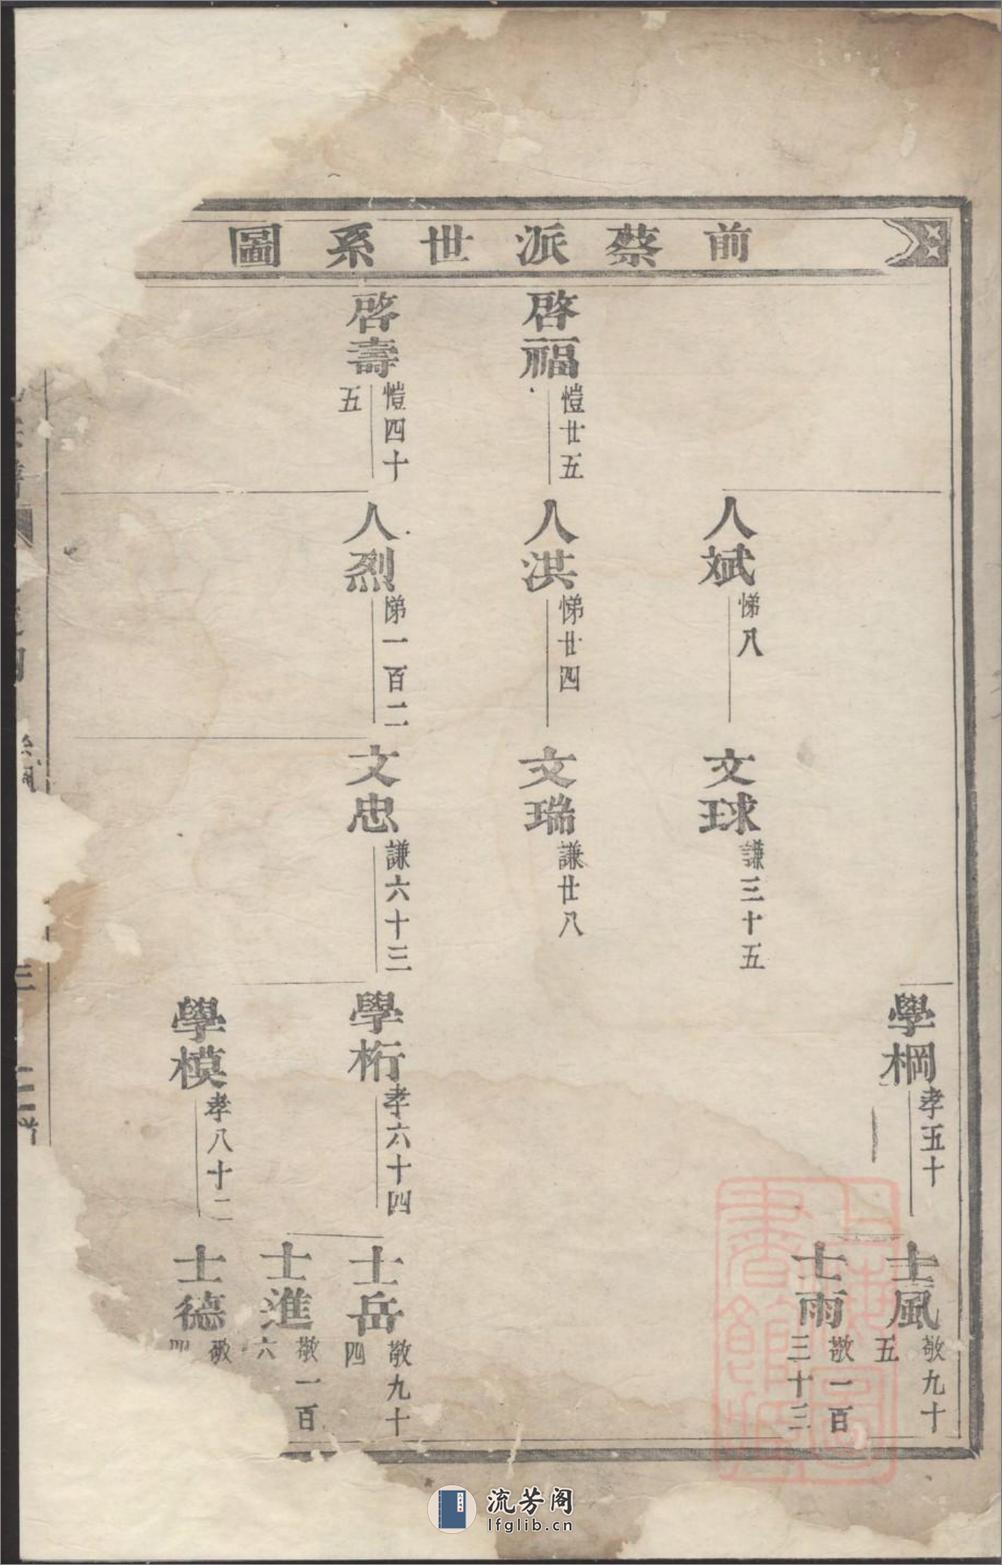 前蔡派世系圖
啓福
愷廿五
啓壽
愷四十
五
人斌
悌八
人洪
悌廿四
人烈
悌一百二
文球
謙三十五
文瑞
謙廿八
文忠
謙六十三
學棡
孝五十
學桁
孝六十四
學模
孝八十二
士風
敬九十
五
士雨
敬一百
三十三
士岳
敬九十
四
士進
敬一百
六
士德
敬
四
上海圖書館藏
流芳阁
lfglib.cn